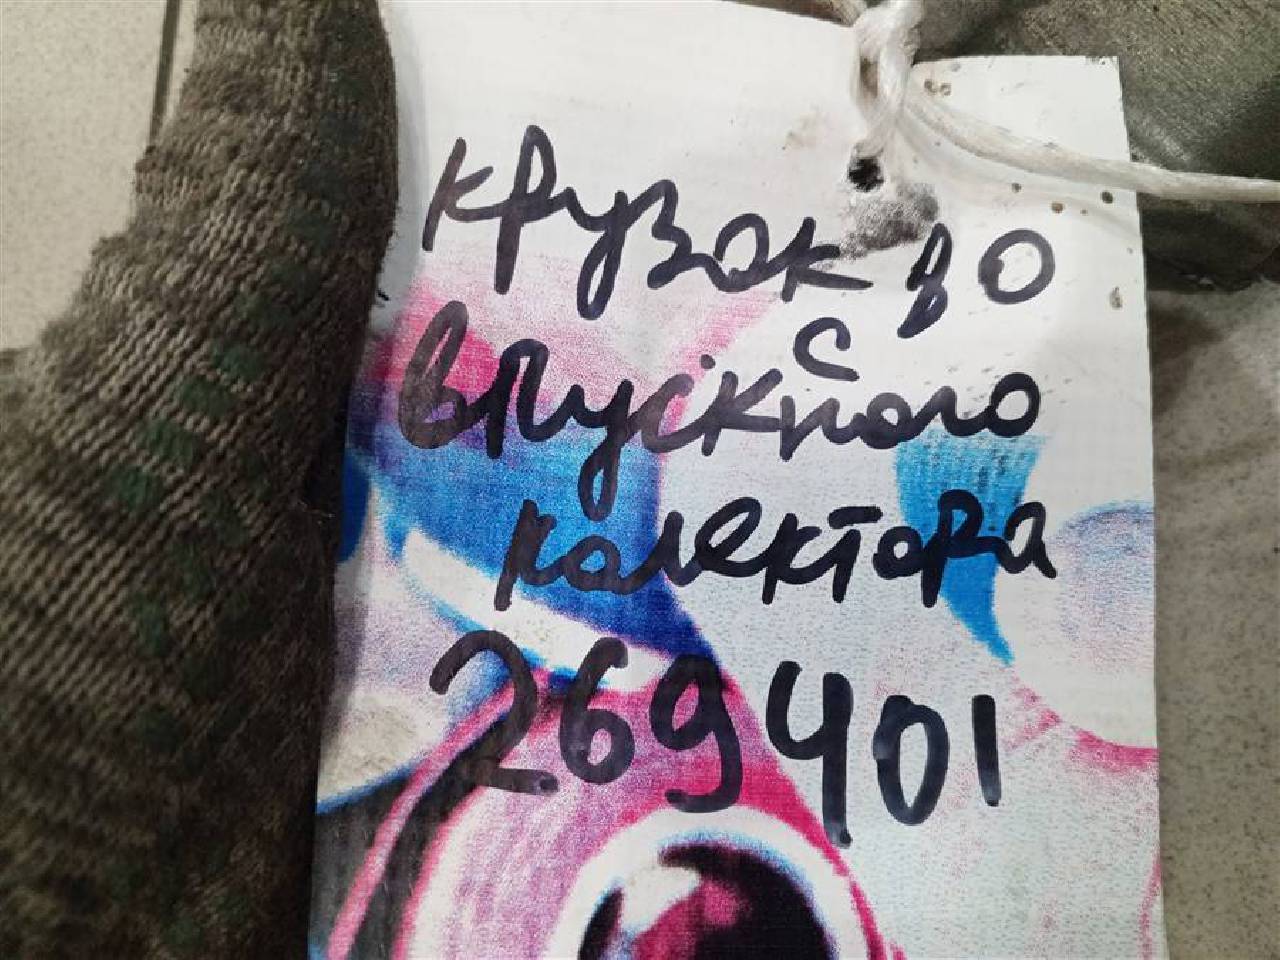 крузак 80
с
впускного
колектора
269401